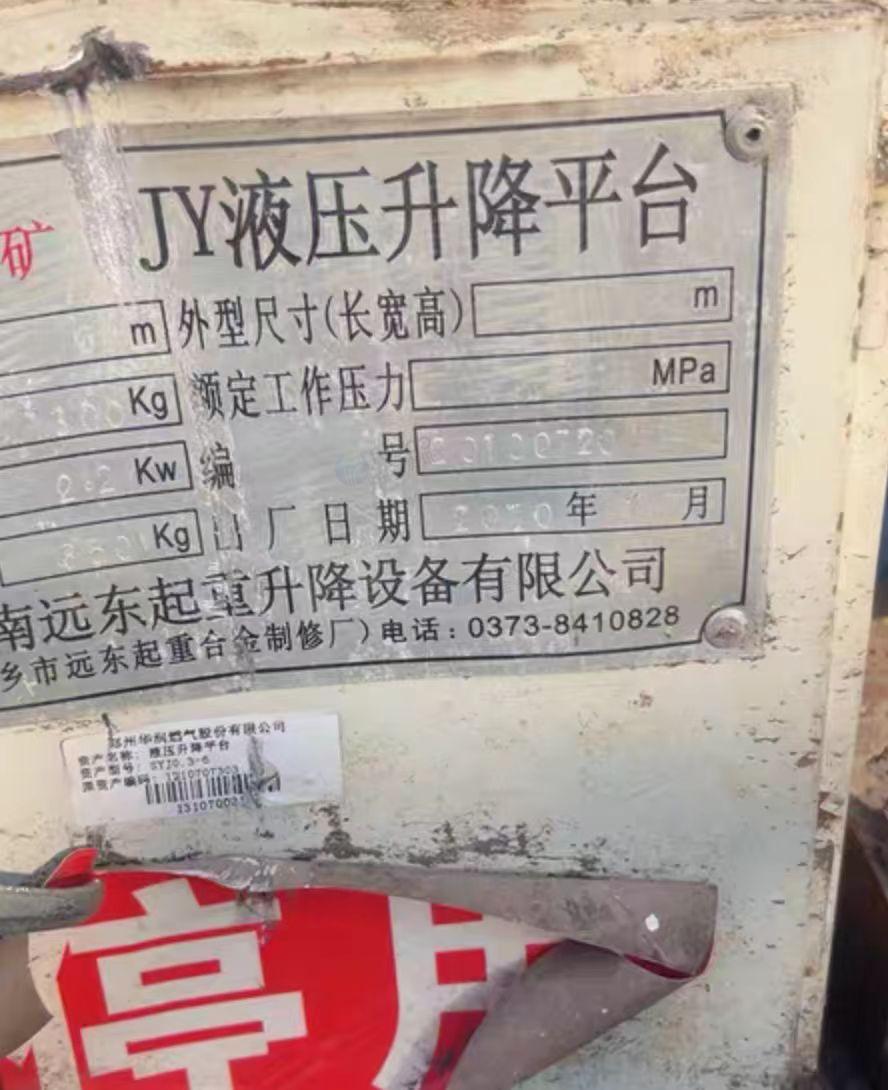 矿 JY液压升降平台
m 外型尺寸(长宽高) m
300 Kg 额定工作压力 MPa
2.2 Kw 编 号 20100720
Kg 出厂日期 2010 年 月
南远东起重升降设备有限公司
乡市远东起重合金制修厂) 电话:0373-8410828
郑州华润燃气股份有限公司
资产名称: 液压升降平台
资产型号: SYJ0.3-6
原资产编码: 1210707303
停用